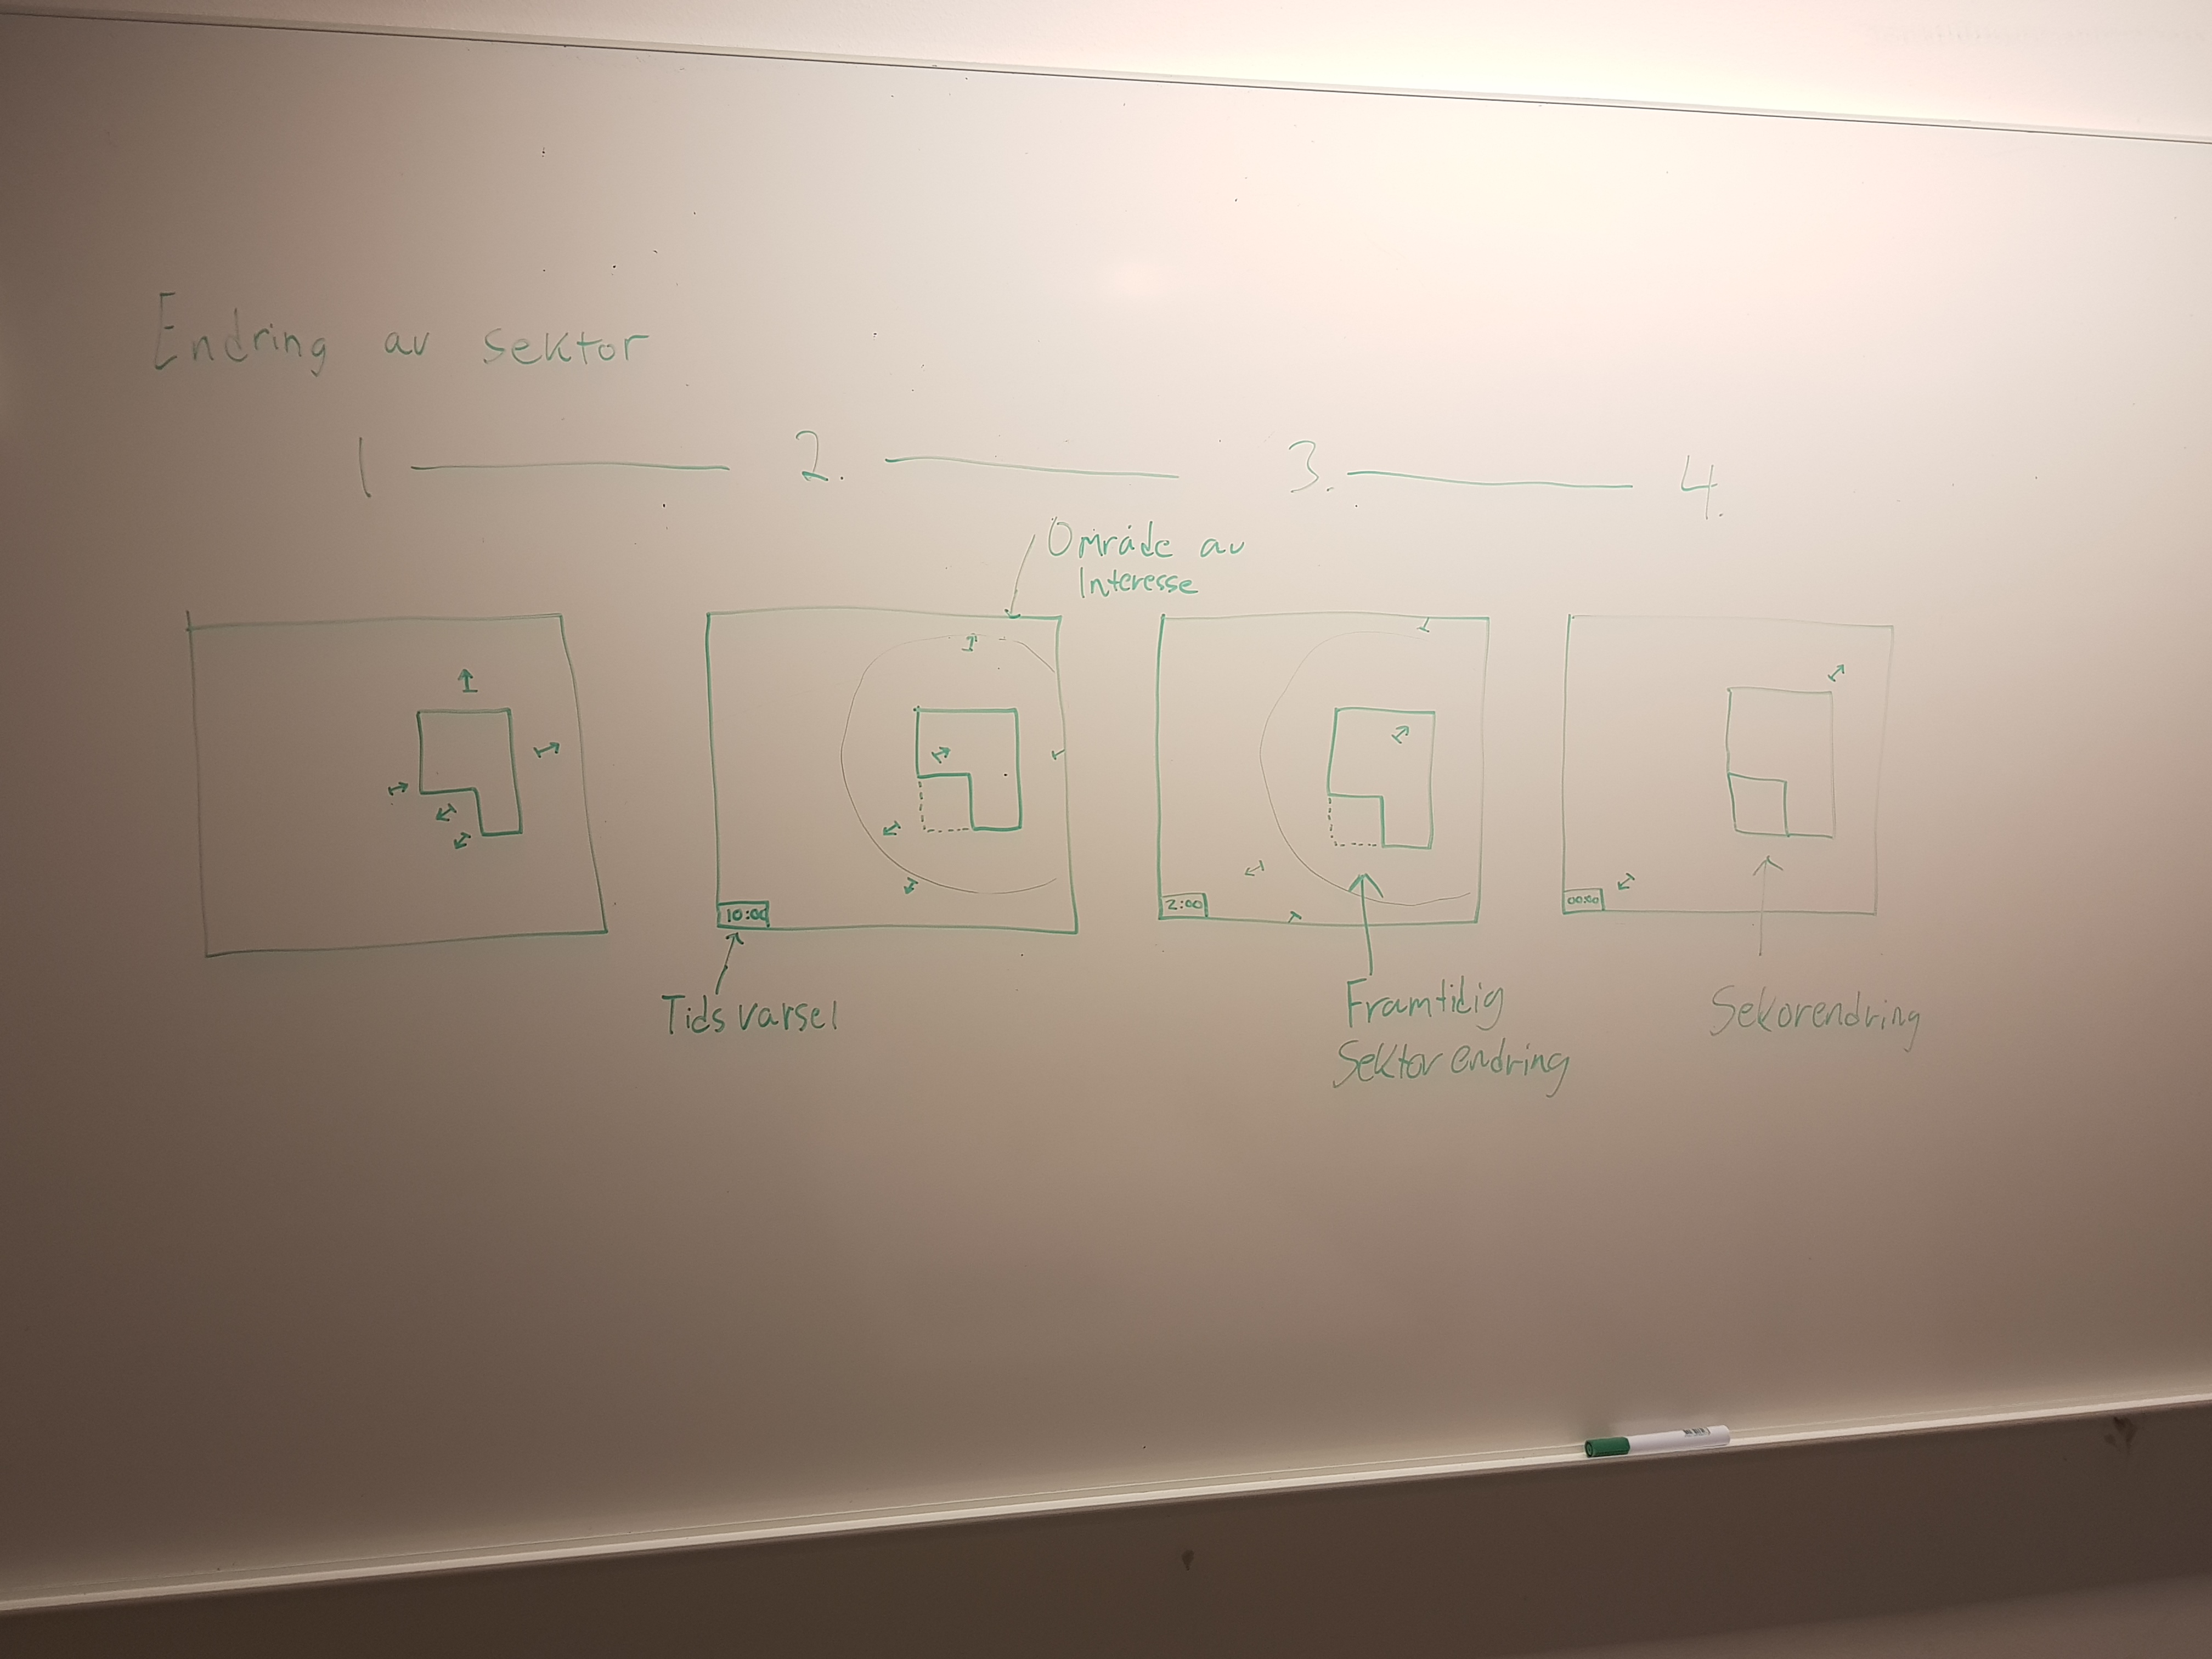 Endring av sektor
1 2. 3. 4.
Område av
Interesse
10:00
2:00
00:00
Tidsvarsel
Framtidig
Sektorendring
Sekorendring